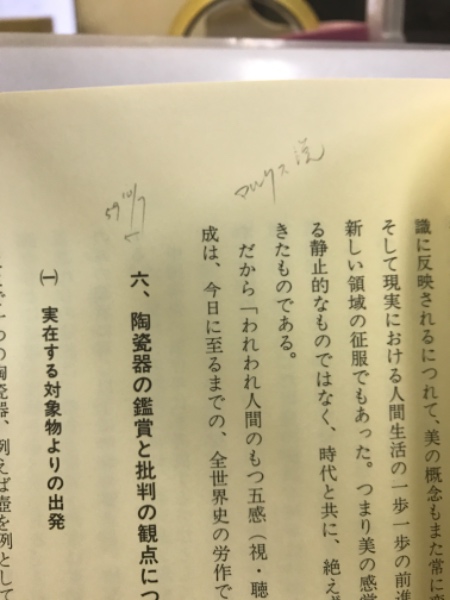 識に反映されるにつれて、美の概念もまた常に
そして現実における人間生活の一歩一歩の前進
新しい領域の征服でもあった。つまり美の感覚
る静止的なものではなく、時代と共に、絶え
きたものである。
だから「われわれ人間のもつ五感（視・聴
成は、今日に至るまでの、全世界史の労作で
マルクス
六、陶瓷器の鑑賞と批判の観点につ
59 10/7
㈠ 実在する対象物よりの出発
つの陶瓷器、例えば壺を例として